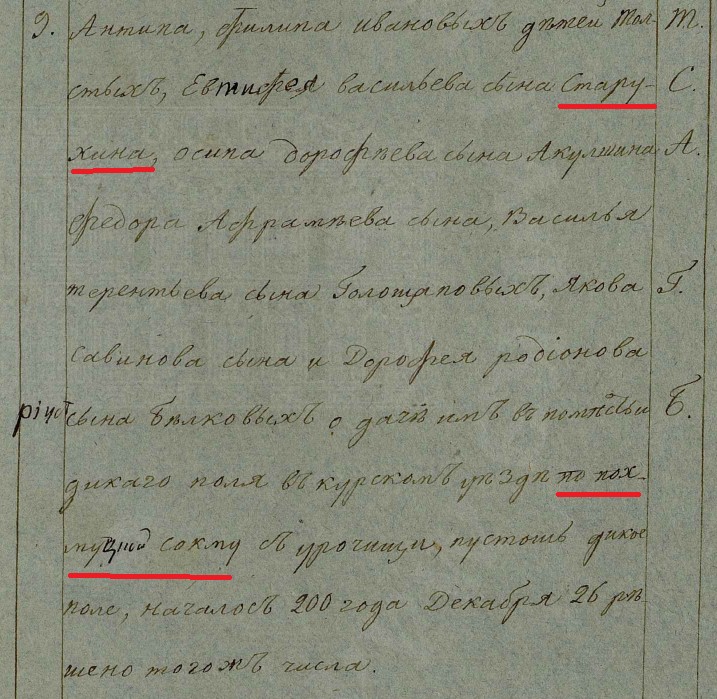 9. Антипа, Филипа Ивановыхъ дѣтей Тол- Т.
стыхъ, Евтифея васильева сына Стару- С.
хина, осипа дорофѣева сына Акулшина А.
Федора Афрамѣева сына, Василья
терентьева сына Голощаповыхъ, Якова Г.
Савинова сына и Дорофея родіонова
сына Бѣлковыхъ о дачѣ имъ въ помѣстьи Б.
дикаго поля въ курскомъ уѣздѣ по пох-
муцкой сокму съ урочищи, пустошь дикое
поле, началось 200 года Декабря 26 рѣ-
шено тогожъ числа.